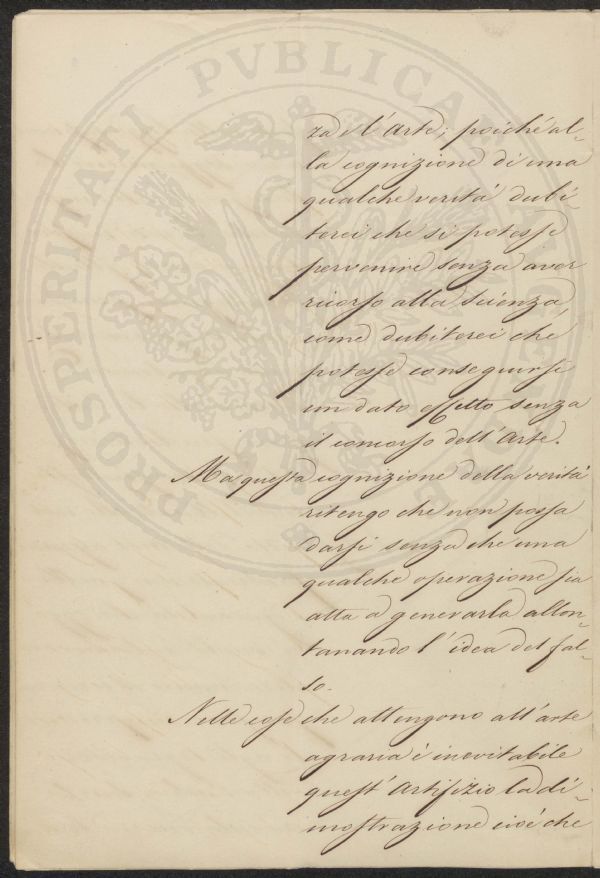 PROSPERITATI PVBLICAE
za e l'Arte; poiché al-
la cognizione di una
qualche veritá dubi-
terei che si potesse
pervenire senza aver
ricorso alla scienza,
come dubiterei che
potesse conseguirsi
un dato effetto senza
il concorso dell'Arte.
Ma questa cognizione della veritá
ritengo che non possa
darsi senza che una
qualche operazione sia
atta a generarla allon-
tanando l'idea del fal-
so.
Nelle cose che attengono all'arte
agraria é inevitabile
quest'Artifizio la di-
mostrazione cioé che